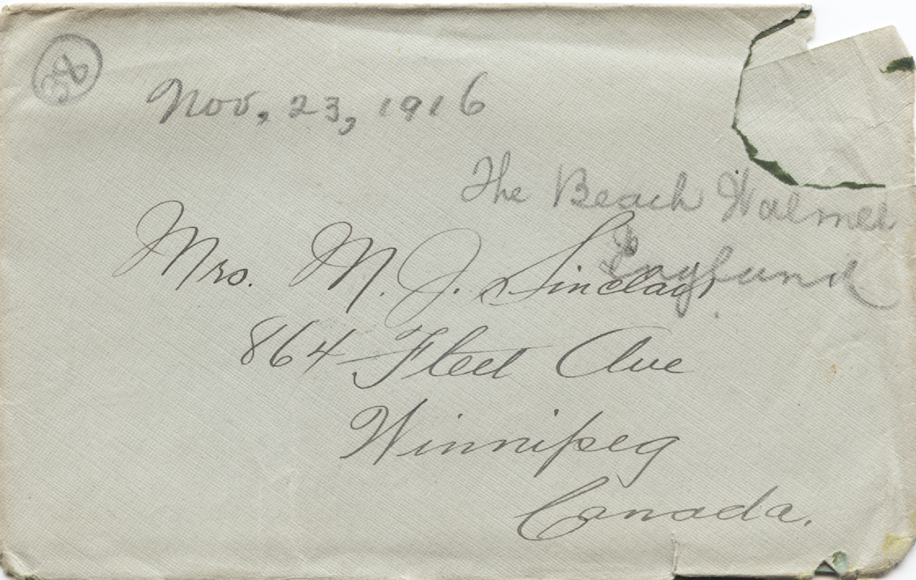 38
Nov. 23, 1916
The Beach Walmer
England
Mrs. M. J. Sinclair
864 Fleet Ave
Winnipeg
Canada.